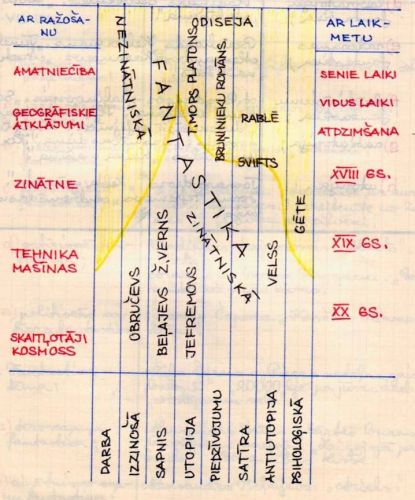 AR RAŽOŠA-
NU
ODISEJA
AR LAIK-
METU
NEZINĀTNISKĀ
FANTASTIKA
ZINĀTNISKĀ
AMATNIECĪBA
ĢEOGRĀFISKIE
ATKLĀJUMI
ZINĀTNE
TEHNIKA
MAŠĪNAS
SKAITĻOTĀJI
KOSMOSS
T.MORS PLATONS
BRUŅINIEKU ROMĀNS.
RABLĒ
SVIFTS
GĒTE
OBRUČEVS
BEĻAJEVS Ž.VERNS
JEFREMOVS
VELSS
SENIE LAIKI
VIDUS LAIKI
ATDZIMŠANA
XVIII GS.
XIX GS.
XX GS.
DARBA
IZZINOŠA
SAPNIS
UTOPIJA
PIEDZĪVOJUMU
SATĪRA
ANTIUTOPIJA
PSIHOLOĢISKĀ